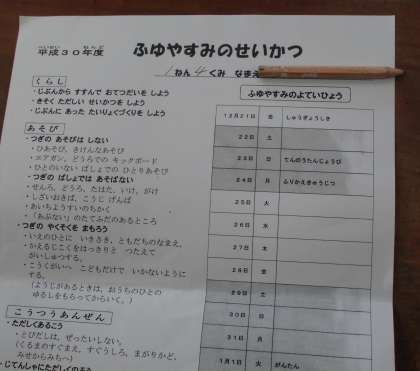 へいせい ねんど
平成30年度 ふゆやすみのせいかつ
1ねん4くみ なまえ
くらし
・じぶんから すすんで おてつだいを しよう
・きそく ただしい せいかつを しよう
・じぶんに あった たいりょくづくりを しよう
あそび
・つぎの あそびは しない
・ひあそび、きけんなあそび
・エアガン、どうろでの キックボード
・ひとのいない ばしょでの ひとりあそび
・つぎの ばしょでは あそばない
・せんろ、どうろ、たはた、いけ、がけ
・しざいおきば、こうじ げんば
・あいちようすいのちかく
・「あぶない」のたてふだのあるところ
・つぎの やくそくを まもろう
・いえのひとに いきさき、ともだちのなまえ、
・かえるじこくをはっきりと つたえて
がいしゅつする。
・こうくがいへ こどもだけで いかないように
する。
（ようじがあるときは、おうちのひとの
ゆるしをもらってからいく。）
こうつうあんぜん
・ただしくあるこう
・とびだしは、ぜったいしない。
（くるまのすぐまえ、すぐうしろ、まがりかど、
みせからみちへ）
・じてんしゃにただしくのろう
ふゆやすみのよていひょう
12月21日 金 しゅうぎょうしき
22日 土
23日 日 てんのうたんじょうび
24日 月 ふりかえきゅうじつ
25日 火
26日 水
27日 木
28日 金
29日 土
30日 日
31日 月
1月1日 火 がんたん